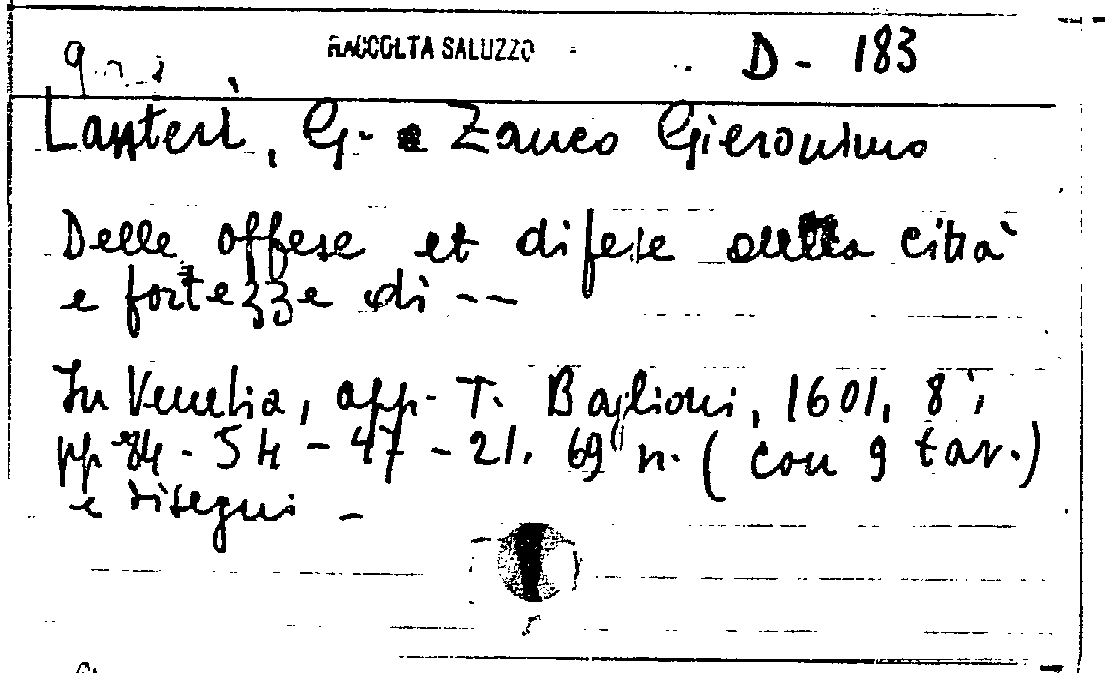 RACCOLTA SALUZZO D - 183
Lanteri, G. e Zanco Gieronimo
Delle offese et difese della città
e fortezze di --
In Venetia, app. T. Baglioni, 1601, 8°,
pp 84 - 54 - 47 - 21. 69 n. (con 9 tav.)
e disegni -